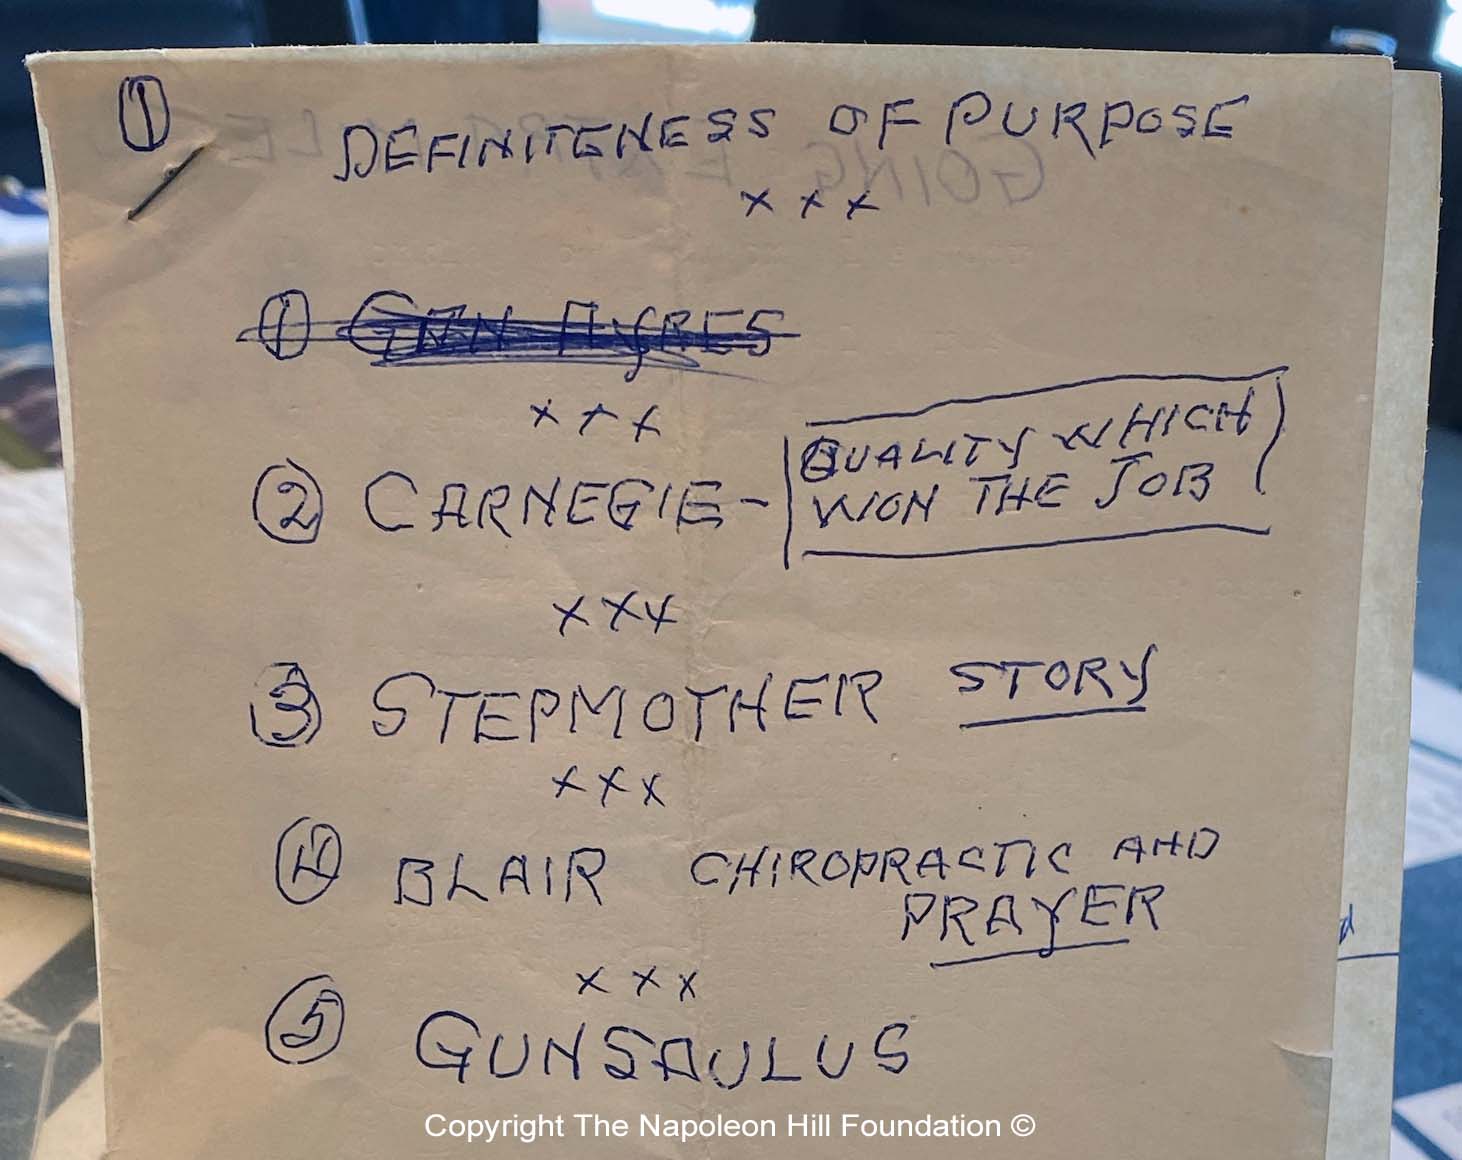 ① DEFINITENESS OF PURPOSE
x x x
① GEN AYRES
x x x
② CARNEGIE - QUALITY WHICH
WON THE JOB
x x x
③ STEPMOTHER STORY
x x x
④ BLAIR CHIROPRACTIC AND
PRAYER
x x x
⑤ GUNSAULUS
Copyright The Napoleon Hill Foundation ©